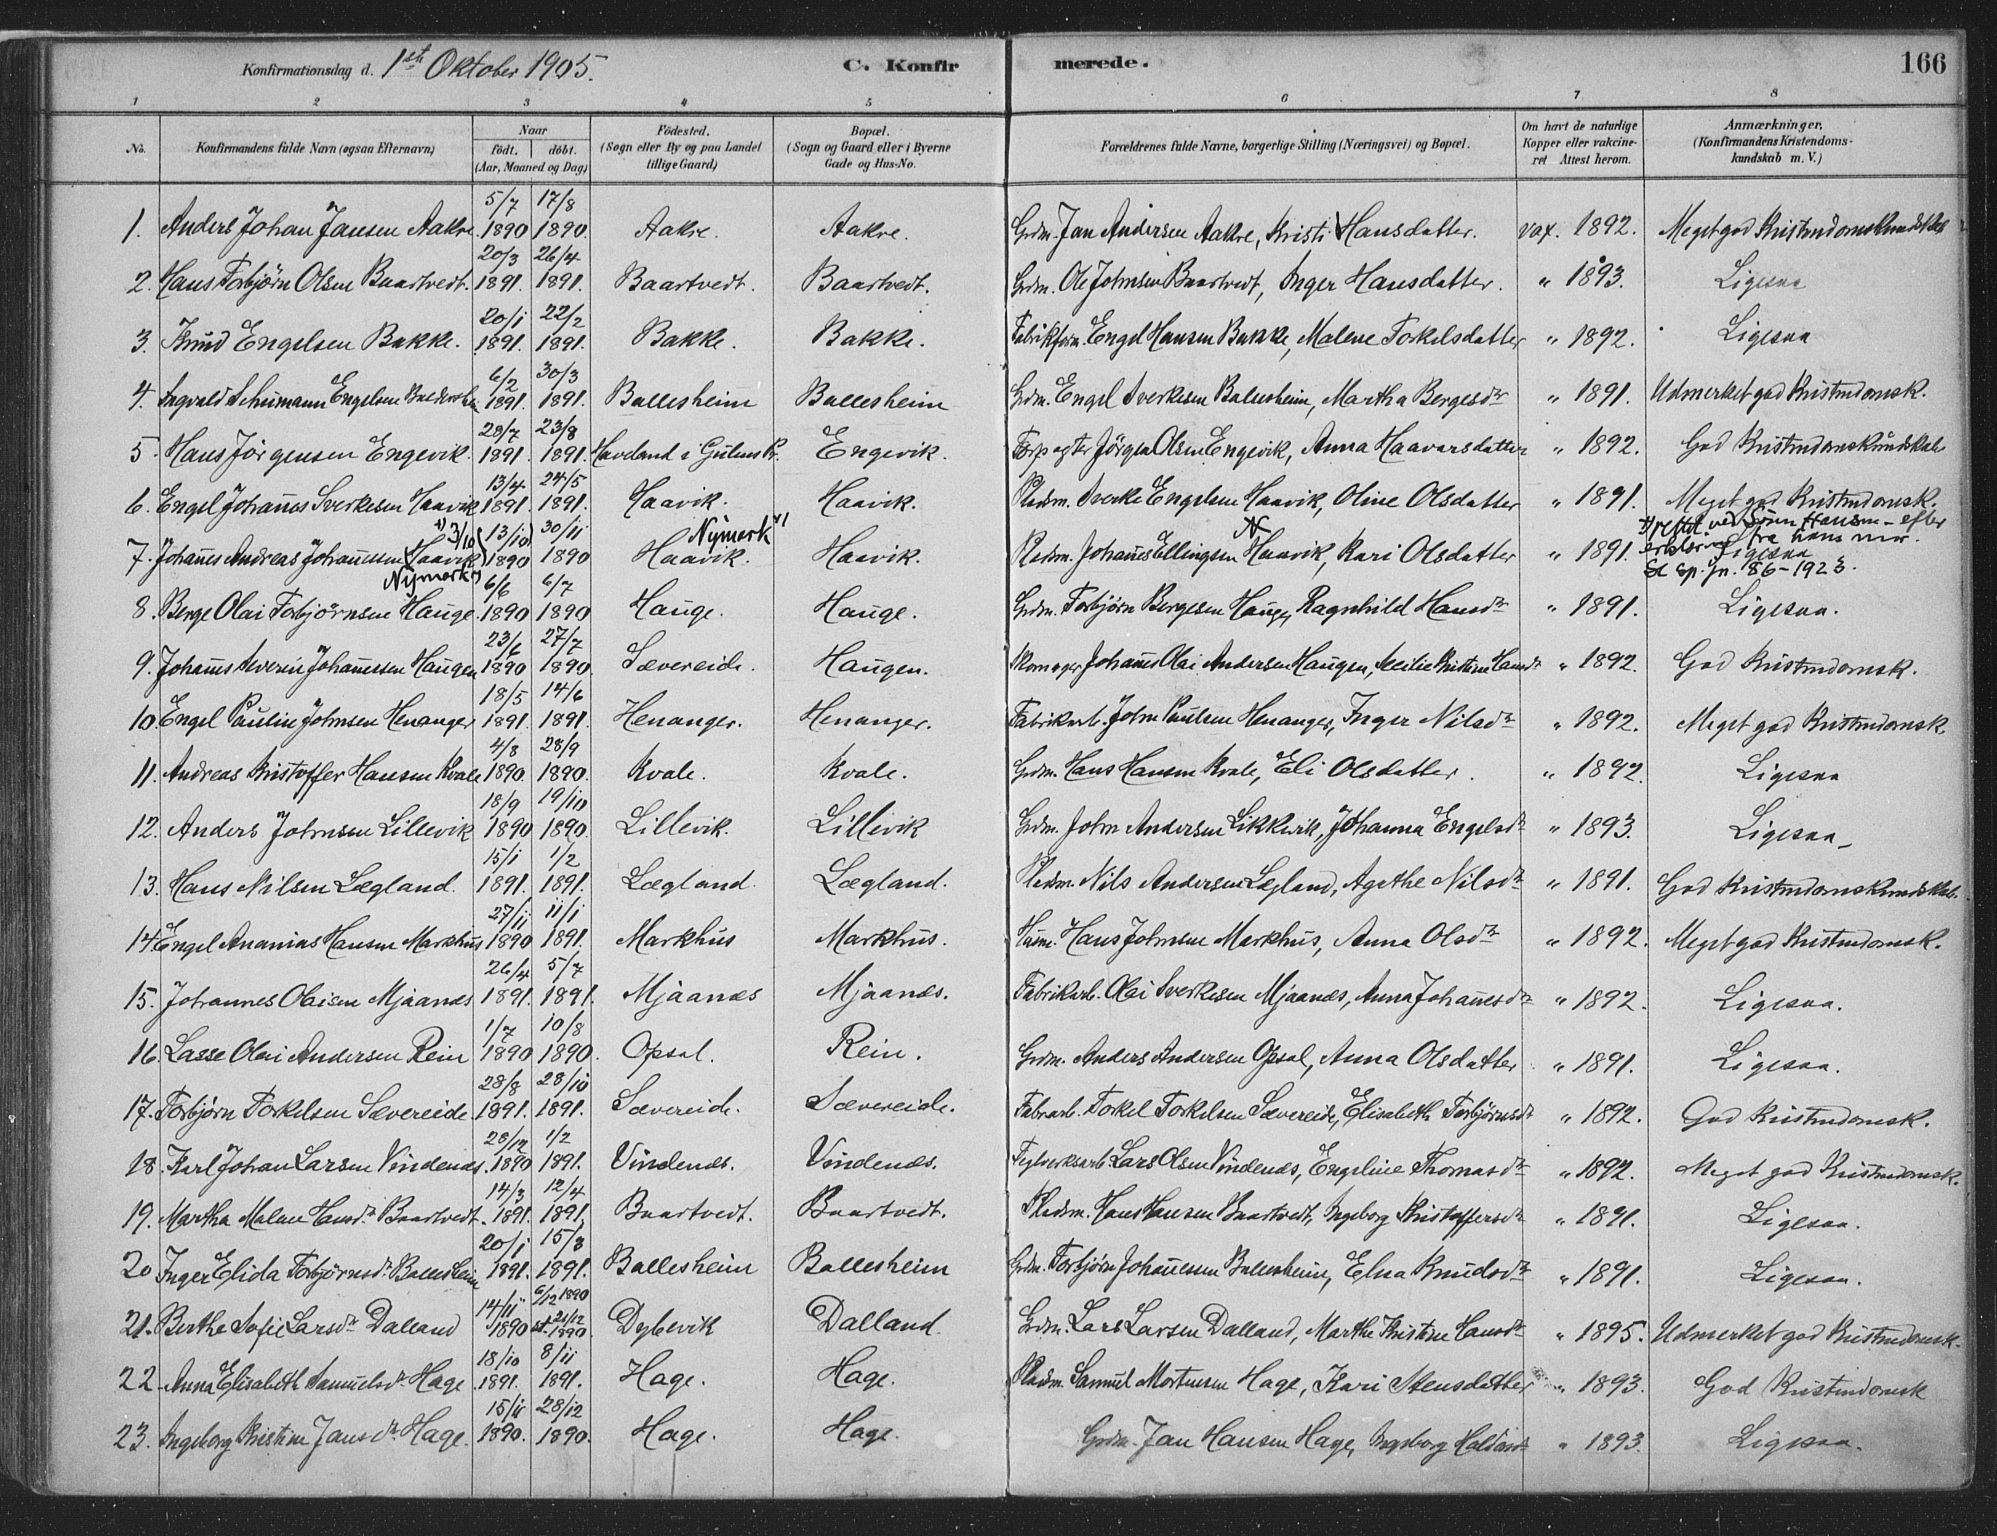 Konfirmationsdag d. 1st Oktober 1905. C. Konfirmerede. 166
1 2 3 4 5 6 7 8
No. Konfirmandens fulde Navn (ogsaa Efternavn.) Naar født. døbt. (Aar, Maaned og Dag) Fødested. (Sogn eller By og paa Landet tillige Gaard) Bopæl. (Sogn og Gaard eller i Byerne Gade og Hus-No. Forældrenes fulde Navne, borgerlige Stilling (Næringsvei) og Bopæl. Om havt de naturlige Kopper eller vakcineret Attest herom. Anmærkninger. (Konfirmandens Kristendomskundskab m. V.)
1. Anders Johan Jansen Aakre 5/7 1890 17/8 1890. Aakre. Aakre. Grdm. Jan Andersen Aakre, Kristi Hansdatter. vax. 1892. Meget god Kristendomskundskab
2. Hans Torbjørn Olsen Baartvedt. 20/3 1891. 26/4 1891. Baartvedt. Baartvedt. Grdm. Ole Johnsen Baartvedt, Inger Hansdatter. " 1893. Ligesaa
3. Knud Engelsen Bakke. 20/1 1891. 22/2 1891. Bakke. Bakke. Engel Hansen Bakke, Malene Torkelsdatter " 1892. Ligesaa
4. Ingvald Schumann Engelsen 6/2 1891. 30/3 1891. Ballesheim Ballesheim Grdm. Engel Sverkesen Ballesheim, Martha Bergesdtr " 1891. Udmerket god Kristendomsk.
5. Hans Jörgensen Engevik. 28/7 1891. 23/8 1891. Haveland i Gulens Pr. Engevik. Jörgen Olsen Engevik, Anna Haavarsdatter " 1892. God Kristendomskundskab
6. Engel Johannes Sverkesen Haavik 13/4 1891. 24/5 1891. Haavik. Haavik. Pladsm. Sverke Engelsen Haavik, Oline Olsdatter " 1891. Meget god Kristendomsk.
7. Johannes Andreas Johannessen (Haavik) Nymark x) x) 3/10 (13/10) 1890 30/11 1890 Haavik. Nymark x) Haavik. Pladsm. Johannes Ellingsen Haavik, Kari Olsdatter " 1891. Ligesaa
x) rettet ved Hansen - efter erklæring fra hans mor. Se sp. jn. 86-1923.
8. Berge Olai Torbjørnsen Hauge. 6/6 1890 6/7 1890 Hauge. Hauge. Grdm. Torbjörn Bergesen Hauge, Ragnhild Hansdtr " 1891. Ligesaa.
9. Johannes Severin Johannessen Haugen 23/6 1890 27/7 1890. Sævereide. Haugen. Skomager Johannes Olai Andersen Haugen, Cecilie Kristine Hansdtr " 1892. God Kristendomsk.
10. Engel Paulin Johnsen Henanger 18/5 1891. 14/6 1891. Henanger. Henanger. Fabrikarb. John Paulsen Henanger, Inger Nilsdtr " 1892. Meget god Kristendomsk
11. Andreas Kristoffer Hansen Kvale 4/8 1890. 28/9 1890. Kvale. Kvale. Grdm. Hans Hansen Kvale, Eli Olsdatter. " 1892. Ligesaa
12. Anders Johnsen Lillevik 18/9 1890 19/10 1890. Lillevik. Lillevik Grdm. John Andersen Likkevik, Johanna Engelsdtr " 1893. Ligesaa
13. Hans Nilsen Lægland. 15/1 1891. 1/2 1891. Lægland. Lægland. Pladsm. Nils Andersen Lægland, Agathe Nilsdtr " 1891. God Kristendomskundskab.
14. Engel Ananias Hansen Markhus 27/11 1890 11/1 1891. Markhus Markhus. Husm. Hans Johnsen Markhus, Anna Olsdtr " 1892. Meget god Kristendomsk.
15. Johannes Olaisen Mjaanes 26/4 1891. 5/7 1891. Mjaanes Mjaanes. Fabrikarb. Olai Sverkesen Mjaanes, Anna Johannesdtr " 1892. Ligesaa.
16. Lasse Olai Andersen Rein 1/7 1890 10/8 1890. Opsal. Rein. Grdm. Anders Andersen Opsal, Anna Olsdatter " 1891. Ligesaa.
17. Torbjörn Torkelsen Sævereide. 28/8 1891. 28/10 1891. Sævereide. Sævereide. Fabrarb. Torkel Torkelsen Sævereide, Elisabeth Torbjørnsdtr " 1892. God Kristendomsk.
18. Karl Johan Larsen Vindenes. 28/12 1890 1/2 1891. Vindenes. Vindenes. Teglverksarb. Lars Olsen Vindenes, Engeline Thomasdtr " 1892. Meget god Kristendomsk.
19. Martha Malene Hansdtr Baartvedt. 14/3 1891. 12/4 1891. Baartvedt. Baartvedt. Pladsm. Hans Hansen Baartvedt, Ingeborg Kristoffersdtr " 1891. Ligesaa.
20 Inger Elida Torbjörnsdtr Ballesheim 20/1 1891. 15/3 1891. Ballesheim Ballesheim Grdm. Torbjörn Johannessen Ballesheim, Elna Knudsdtr " 1891. Ligesaa.
21. Berthe Sofie Larsdtr Dalland 14/11 1890 6/12 1890 st. 21/12 1890 Dybevik Dalland Grdm. Lars Larsen Dalland, Marthe Kristine Hansdtr " 1895. Udmerket god Kristendomsk.
22. Anna Elisabeth Samuelsdtr Hage 18/10 1891. 8/11 1891. Hage. Hage. Pladsm. Samuel Mortensen Hage, Kari Stensdatter " 1893. God Kristendomsk
23. Ingeborg Kristine Jansdtr Hage. 15/11 1890. 28/12 1890. Hage. Hage. Grdm. Jan Hansen Hage, Ingeborg " 1893. Ligesaa.